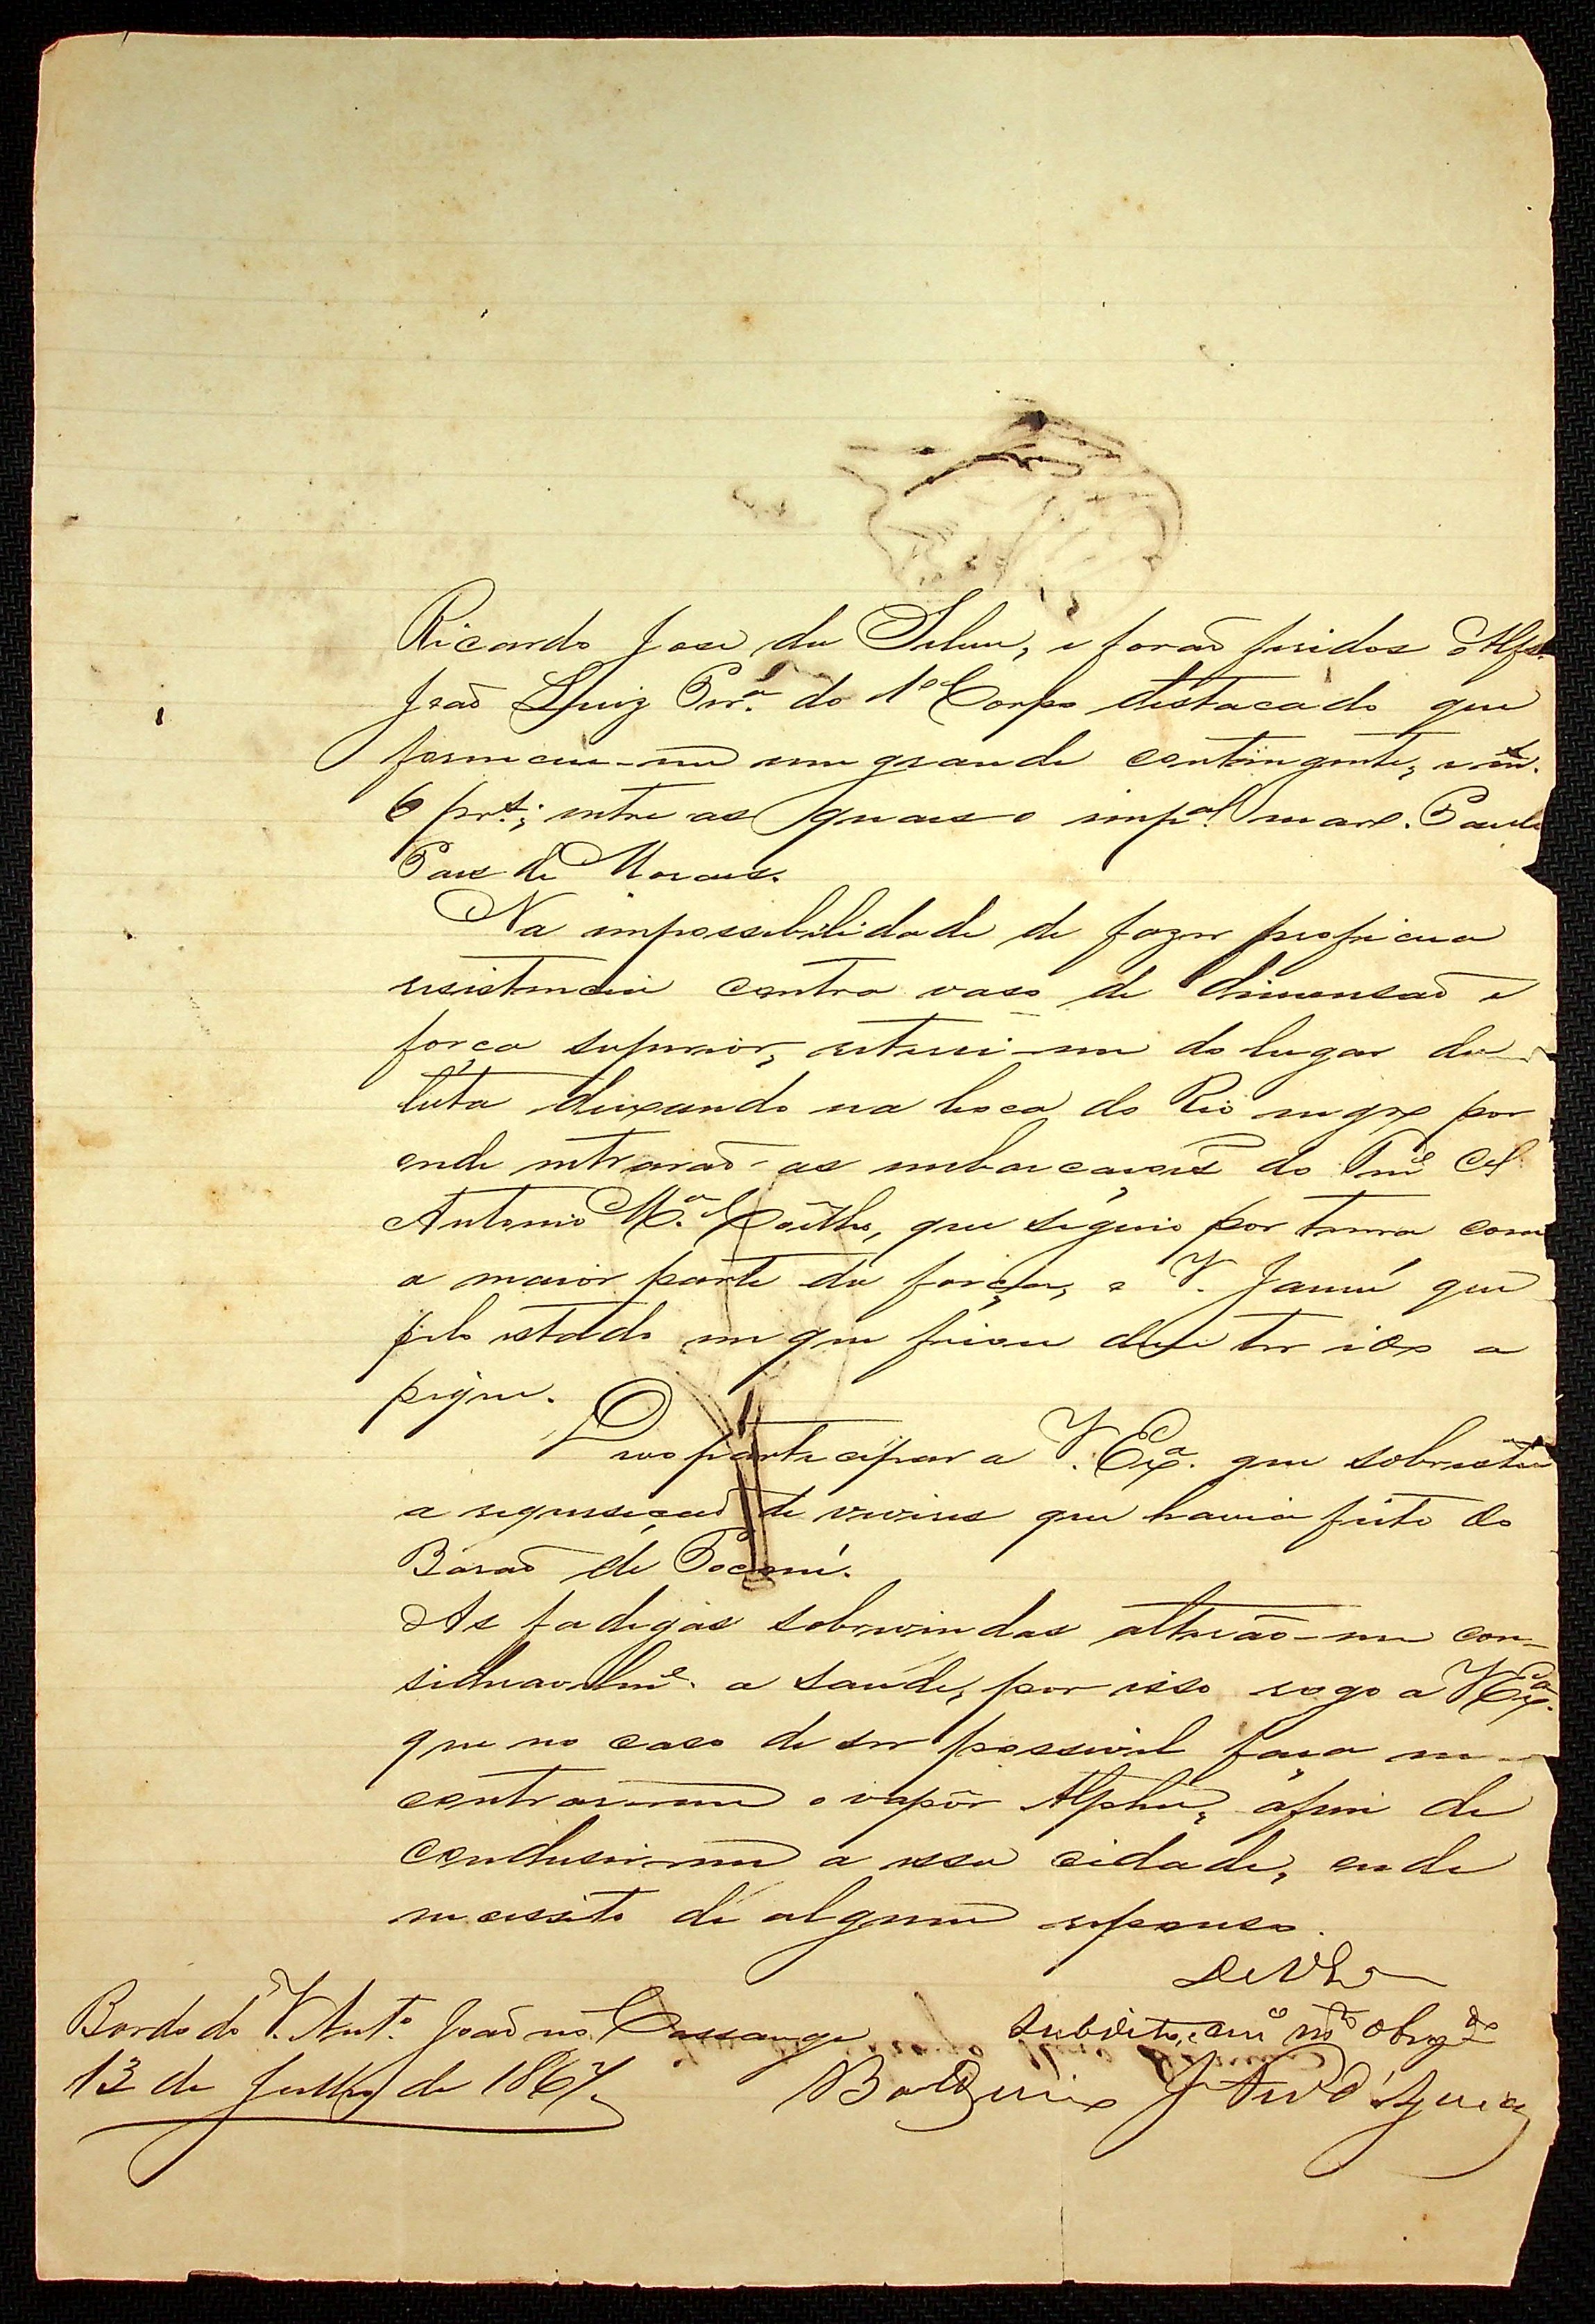 Ricardo Jose da Silva, e forão feridos o Alfs.
João Luiz Perª. do 1º Corpo destacado que
forneceu-me um grande contingente, e m.
6 prs.; entre as quaes o impal. marº. Paulo
Paes de Moraes.
Na impossibilidade de fazer proficua
resistencia contra vaso de dimensão e
força superior, retirei-me do lugar da
luta deixando na boca do Rio negro por
onde entrarão as embarcações do Tene Cel
Antonio Mª. Coêlho, que seguio por terra com
a maior parte da força, e V. Jaurú que
pelo estado em que ficou deve ter ido a
pique.
Devo participar a V. Exª. que sobrestive
a requisição de viveres que havia feito ao
Barão de Poconé.
As fadigas sobrevindas alterão-me con-
sideravelme. a saude, por isso rogo a V Exª.
que no caso de ser possivel faça en-
contrar-me o vapôr Alpha, afim de
condusir-me a essa cidade, onde
necessito de algum repouso.
De V Ex
subdito, amº mto obrigdo
Bordo do V. Antº João no Cassange
13 de Julho de 1867.
Balduino J. Ferrª d'Aguiar